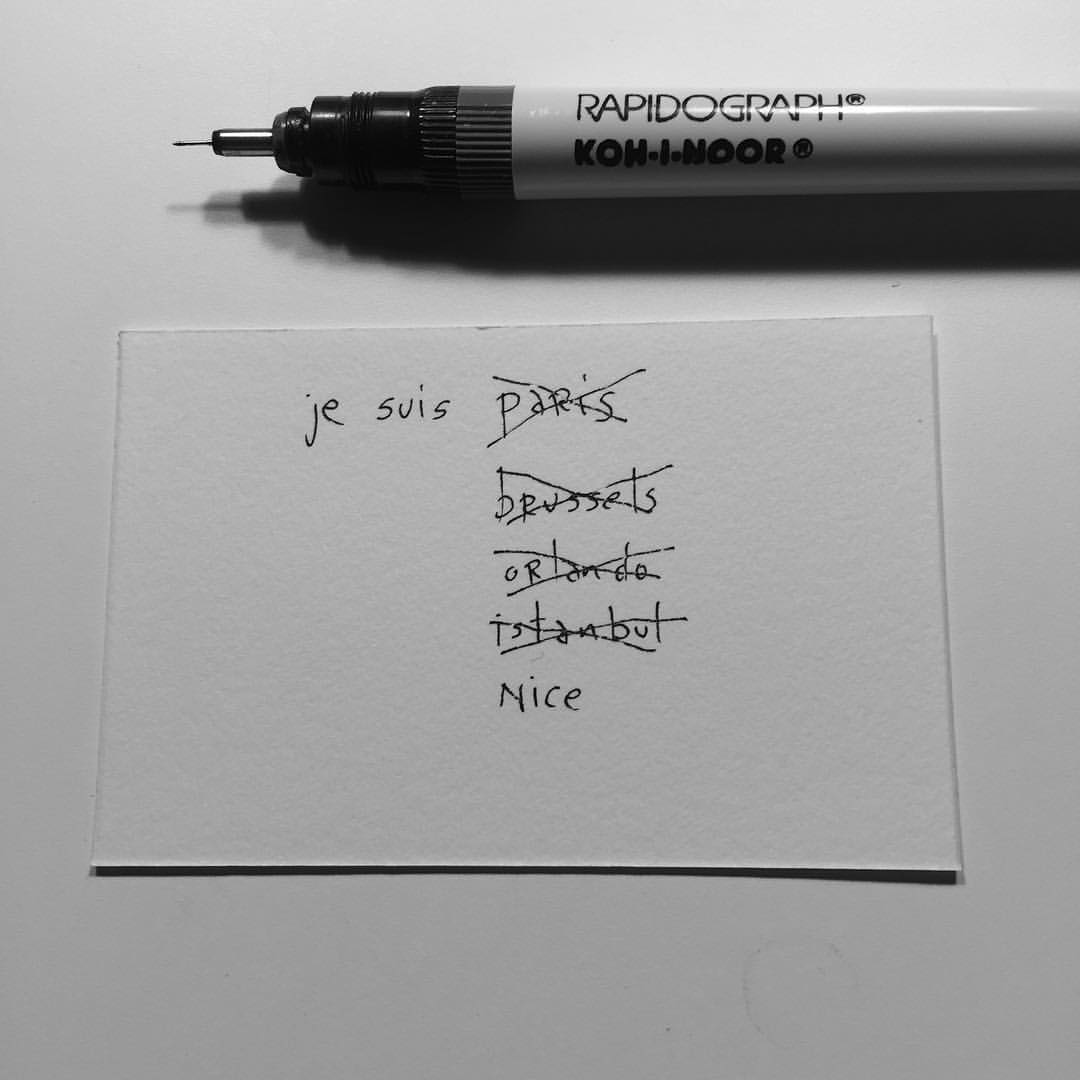 RAPIDOGRAPH®
KOH-I-NOOR®
je suis paris
brussels
orlando
istanbul
Nice